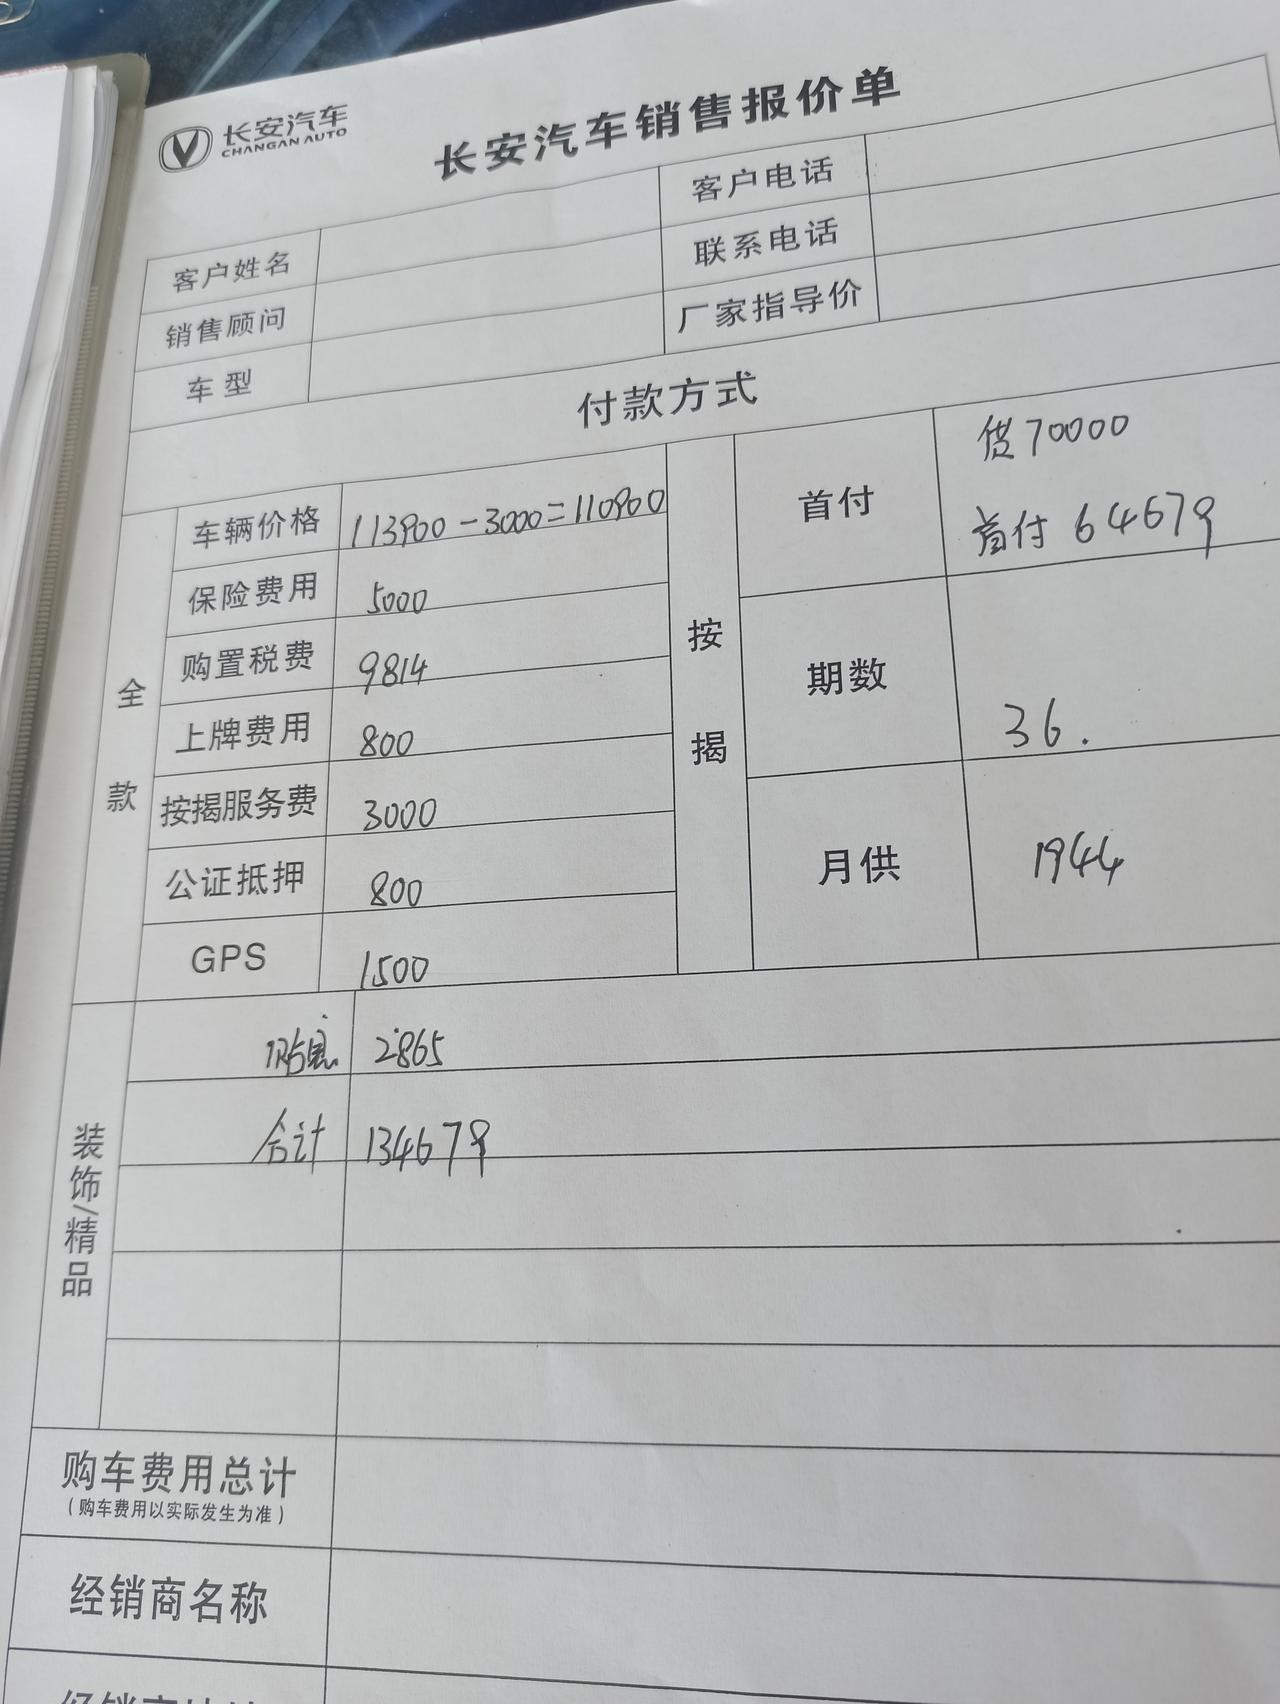 长安汽车
CHANGAN AUTO
长安汽车销售报价单
客户姓名
客户电话
销售顾问
联系电话
车型
厂家指导价
付款方式
全款
车辆价格 113900-3000=110900
保险费用 5000
购置税费 9814
上牌费用 800
按揭服务费 3000
公证抵押 800
GPS 1500
按揭
首付 贷70000
首付 64679
期数 36.
月供 1944
装饰/精品
贴息 2865
合计 134679
购车费用总计
(购车费用以实际发生为准)
经销商名称